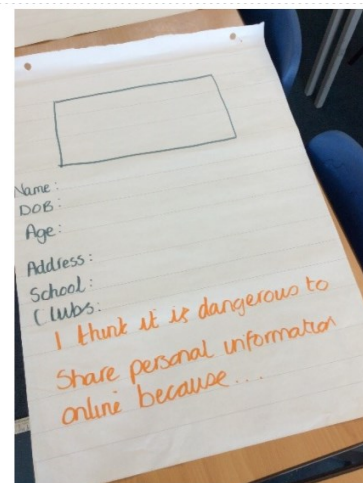 Name:
DOB:
Age:
Address:
School:
Clubs:
I think it is dangerous to
Share personal information
online because...